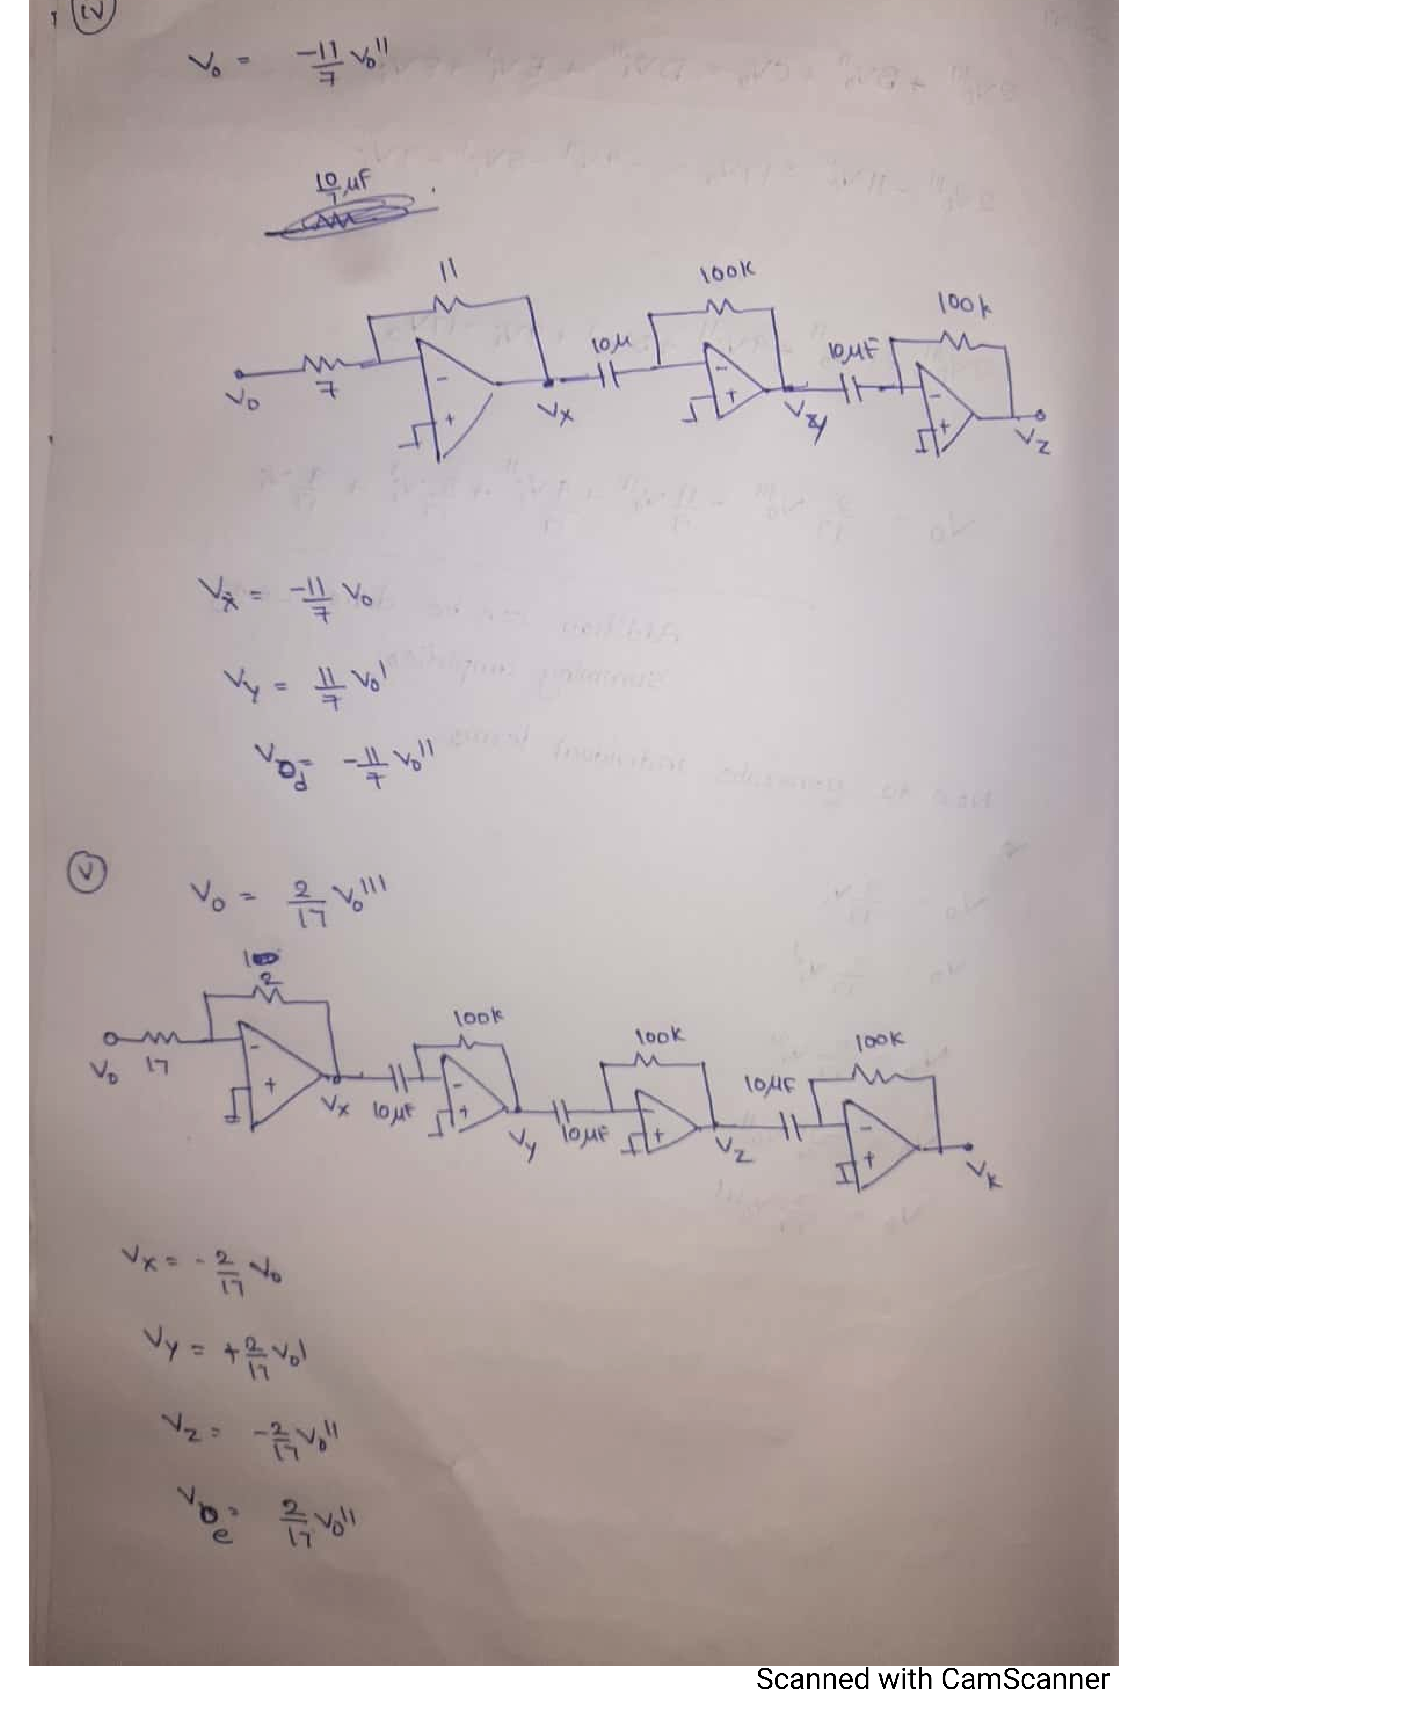 iv
V₀ = -11/7 V₀''
10/7 μF
11
100K
100k
10μ
10μF
7
V₀
Vx
Vy
Vz
Vx = -11/7 V₀
Vy = 11/7 V₀'
V₀d = -11/7 V₀''
V
V₀ = 2/17 V₀'''
2
100K
100K
100K
10μF
V₀
17
Vx
10μF
Vy
10μF
Vz
Vk
Vx = -2/17 V₀
Vy = +2/17 V₀'
Vz = -2/17 V₀''
V₀e = 2/17 V₀''
Scanned with CamScanner